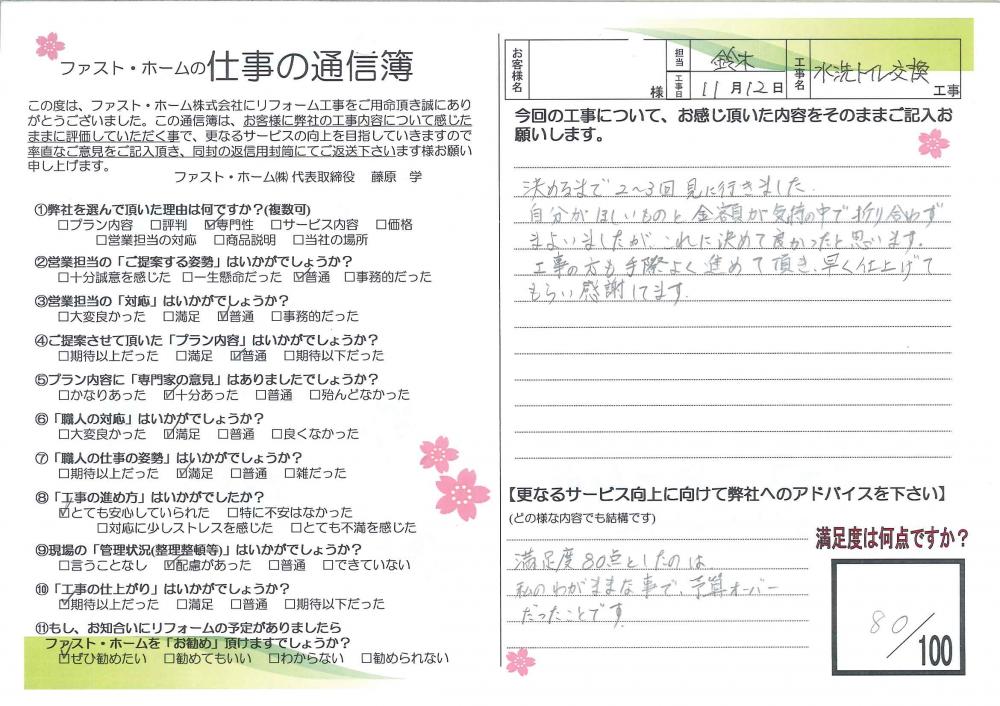 ファスト・ホームの仕事の通信簿
この度は、ファスト・ホーム株式会社にリフォーム工事をご用命頂き誠にあり
がとうございました。この通信簿は、お客様に弊社の工事内容について感じた
ままに評価していただく事で、更なるサービスの向上を目指していきますので
率直なご意見をご記入頂き、同封の返信用封筒にてご返送下さいます様お願い
申し上げます。
ファスト・ホーム㈱ 代表取締役 藤原 学
①弊社を選んで頂いた理由は何ですか?(複数可)
□プラン内容 □評判 ☑専門性 □サービス内容 □価格
□営業担当の対応 □商品説明 □当社の場所
②営業担当の「ご提案する姿勢」はいかがでしょうか?
□十分誠意を感じた □一生懸命だった ☑普通 □事務的だった
③営業担当の「対応」はいかがでしょうか?
□大変良かった □満足 ☑普通 □事務的だった
④ご提案させて頂いた「プラン内容」はいかがでしょうか?
□期待以上だった □満足 ☑普通 □期待以下だった
⑤プラン内容に「専門家の意見」はありましたでしょうか?
□かなりあった ☑十分あった □普通 □殆んどなかった
⑥「職人の対応」はいかがでしょうか?
□大変良かった ☑満足 □普通 □良くなかった
⑦「職人の仕事の姿勢」はいかがでしょうか?
□期待以上だった ☑満足 □普通 □雑だった
⑧「工事の進め方」はいかがでしたか?
☑とても安心していられた □特に不安はなかった
□対応に少しストレスを感じた □とても不満を感じた
⑨現場の「管理状況(整理整頓等)」はいかがでしょうか?
□言うことなし ☑配慮があった □普通 □できていない
⑩「工事の仕上がり」はいかがでしょうか?
☑期待以上だった □満足 □普通 □期待以下だった
⑪もし、お知合いにリフォームの予定がありましたら
ファスト・ホームを「お勧め」頂けますでしょうか?
☑ぜひ勧めたい □勧めてもいい □わからない □勧められない
お客様名 様 担当 鈴木 工事日 11月12日 工事名 水洗トイレ交換 工事
今回の工事について、お感じ頂いた内容をそのままご記入お
願いします。
決めるまで2〜3回見に行きました.
自分がほしいものと金額が気持の中で折り合わず
まよいましたが、これに決めて良かったと思います.
工事の方も手際よく進めて頂き、早く仕上げて
もらい感謝してます.
【更なるサービス向上に向けて弊社へのアドバイスを下さい】
(どの様な内容でも結構です)
満足度は何点ですか?
満足度80点としたのは
私のわがままな事で、予算オーバー
だったことです.
80/100